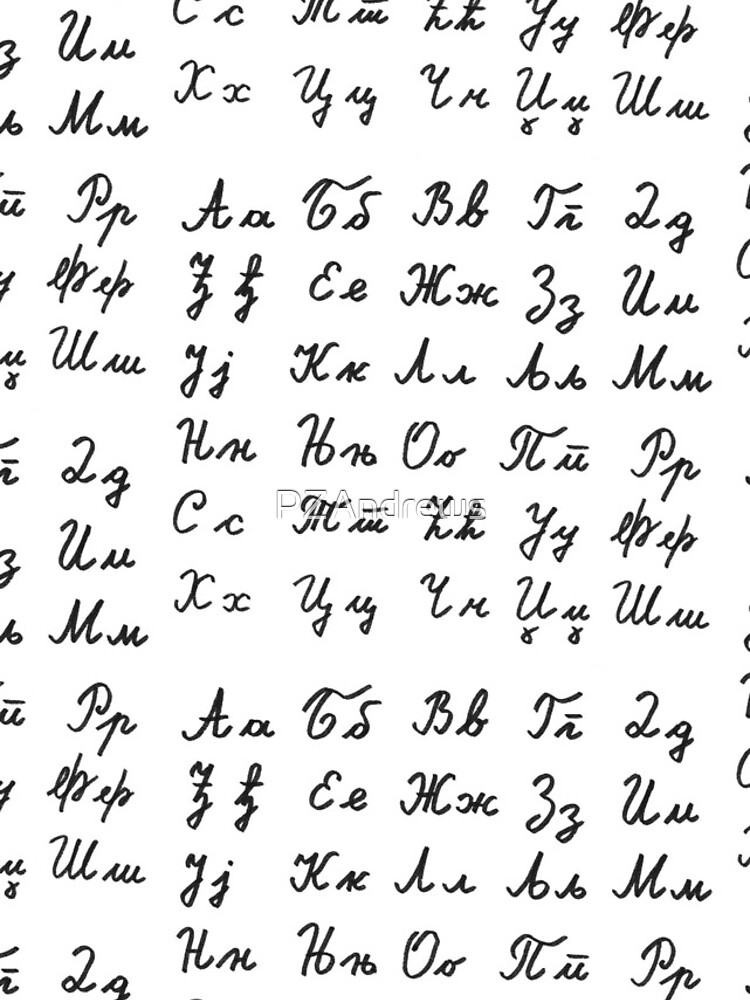 Сс Тт Ћћ Уу Фф
з Ии
Хх Цц Чч Џџ Шш
љ Мм
п Рр Аа Бб Вв Гг Дд
у Фф Ђђ Ее Жж Зз Ии
џ Шш Јј Кк Лл Љљ Мм
г Дд Нн Њњ Оо Пп Рр
Сс Тт Ћћ Уу Фф
PZAndrews
з Ии
Хх Цц Чч Џџ Шш
љ Мм
п Рр Аа Бб Вв Гг Дд
у Фф Ђђ Ее Жж Зз Ии
џ Шш Јј Кк Лл Љљ Мм
г Дд Нн Њњ Оо Пп Рр